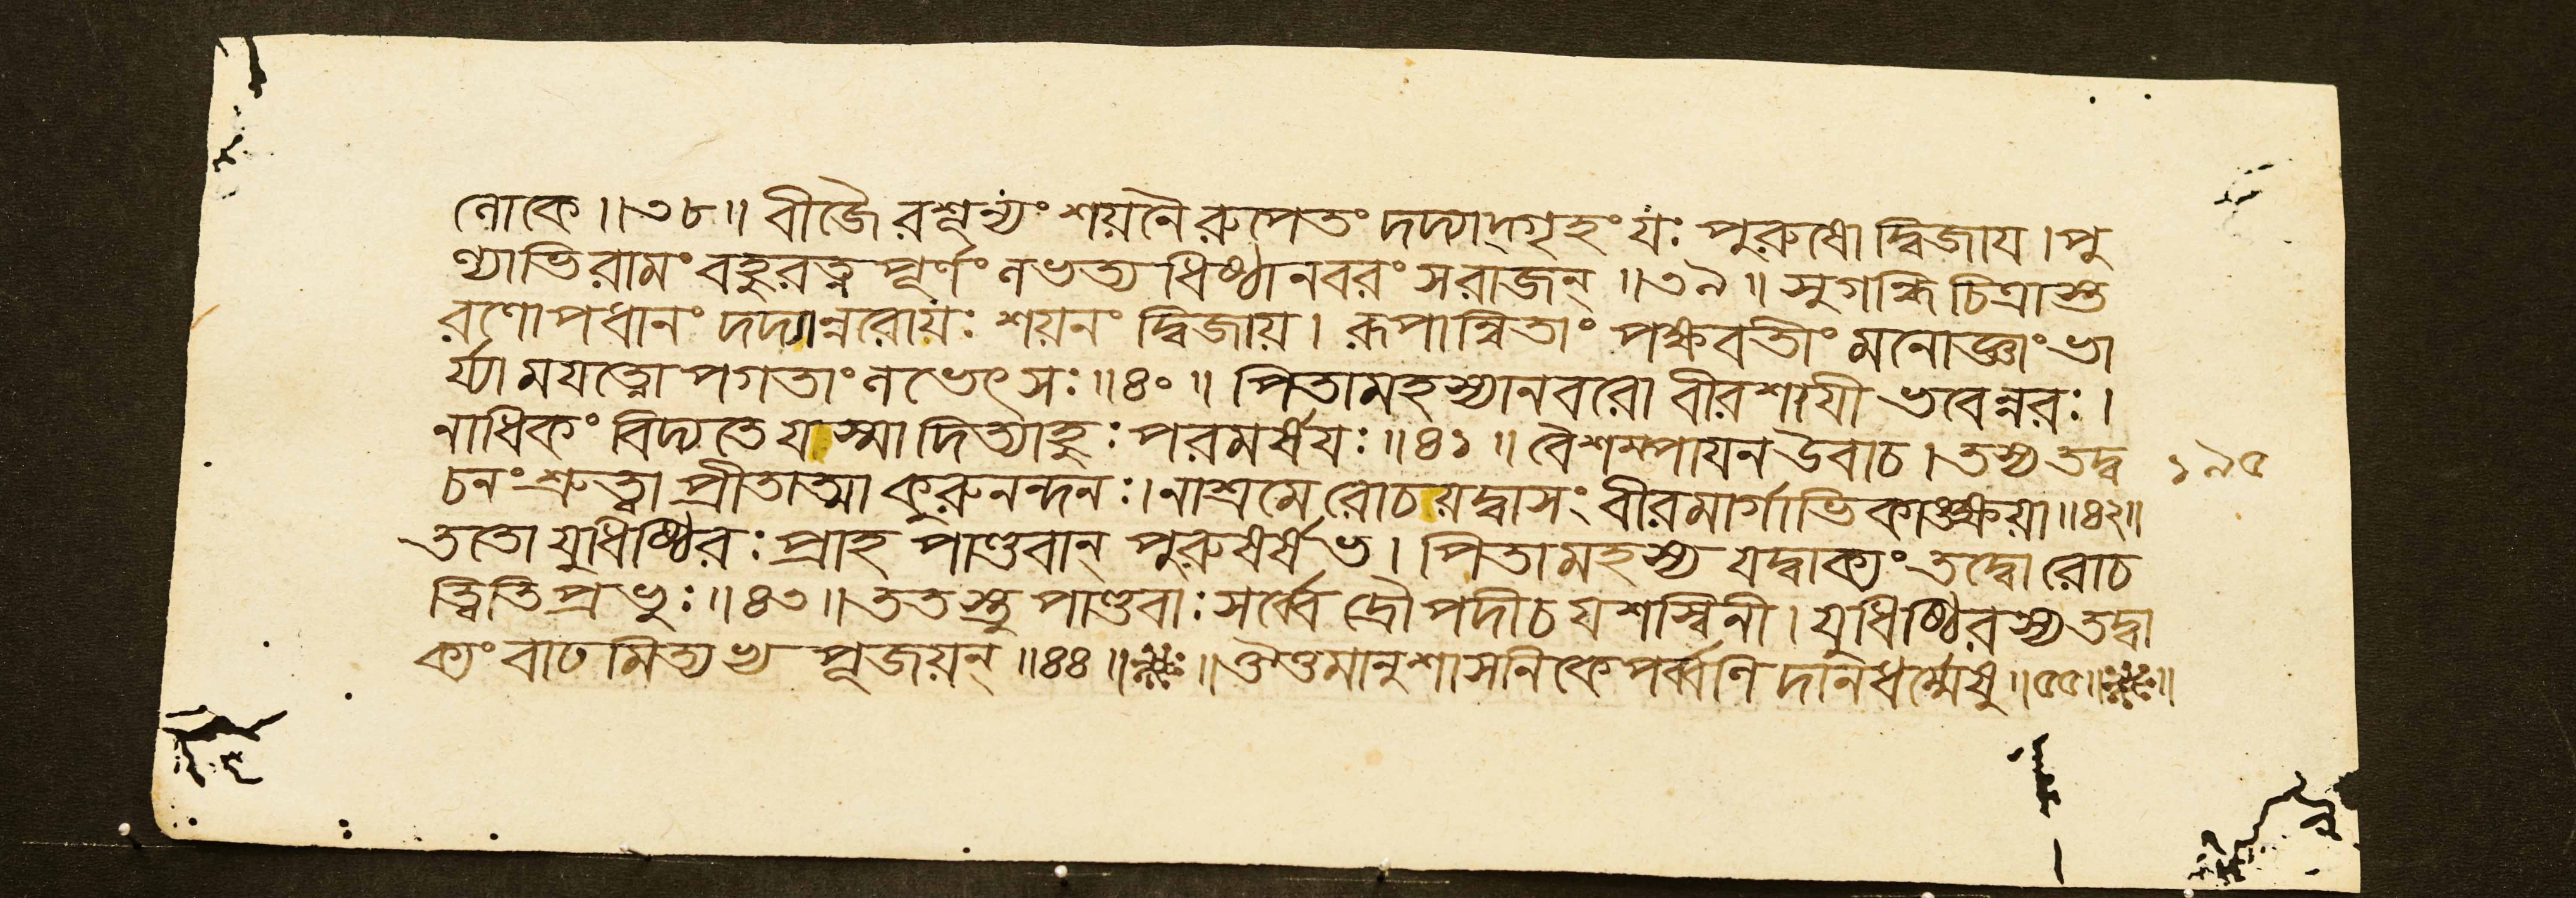 লোকে ॥৩৮॥ বীজৈরশূন্যং শয়নৈরুপেতং দদ্যাদ্গৃহং যঃ পুরুষো দ্বিজায । পু
ণ্যাভিরামং বহুরত্নপূর্ণং লভত্যধিষ্ঠানবরং স রাজন্ ॥৩৯॥ সুগন্ধিচিত্রাস্ত
রণোপধানং দদ্যান্নরো যঃ শয়নং দ্বিজায় । রূপান্বিতাং পক্ষবতীং মনোজ্ঞাং ভা
র্য্যামযত্নোপগতাং লভেৎ সঃ ॥৪০॥ পিতামহস্যানবরো বীরশাযী ভবেন্নরঃ ।
নাধিকং বিদ্যতে যস্মাদিত্যাহুঃ পরমর্ষযঃ ॥৪১॥ বৈশম্পাযন উবাচ । তস্য তদ্ব
চনং শ্রুত্বা প্রীতাত্মা কুরুনন্দনঃ । নাশ্রমে রোচয়দ্বাসং বীরমার্গাভিকাঙ্ক্ষয়া ॥৪২॥
ততো যুধিষ্ঠিরঃ প্রাহ পাণ্ডবান্ পুরুষর্ষভ । পিতামহস্য যদ্বাক্যং তদ্বো রোচ
ত্বিতি প্রভুঃ ॥৪৩॥ ততস্তু পাণ্ডবাঃ সর্ব্বে দ্রৌপদী চ যশস্বিনী । যুধিষ্ঠিরস্য তদ্বা
ক্যং বাঢমিত্যভ্যপূজয়ন্ ॥৪৪॥ ॥ মানুশাসনিকে পর্ব্বণি দানধর্ম্মেষু ॥৫৫॥ ॥
১৯৫